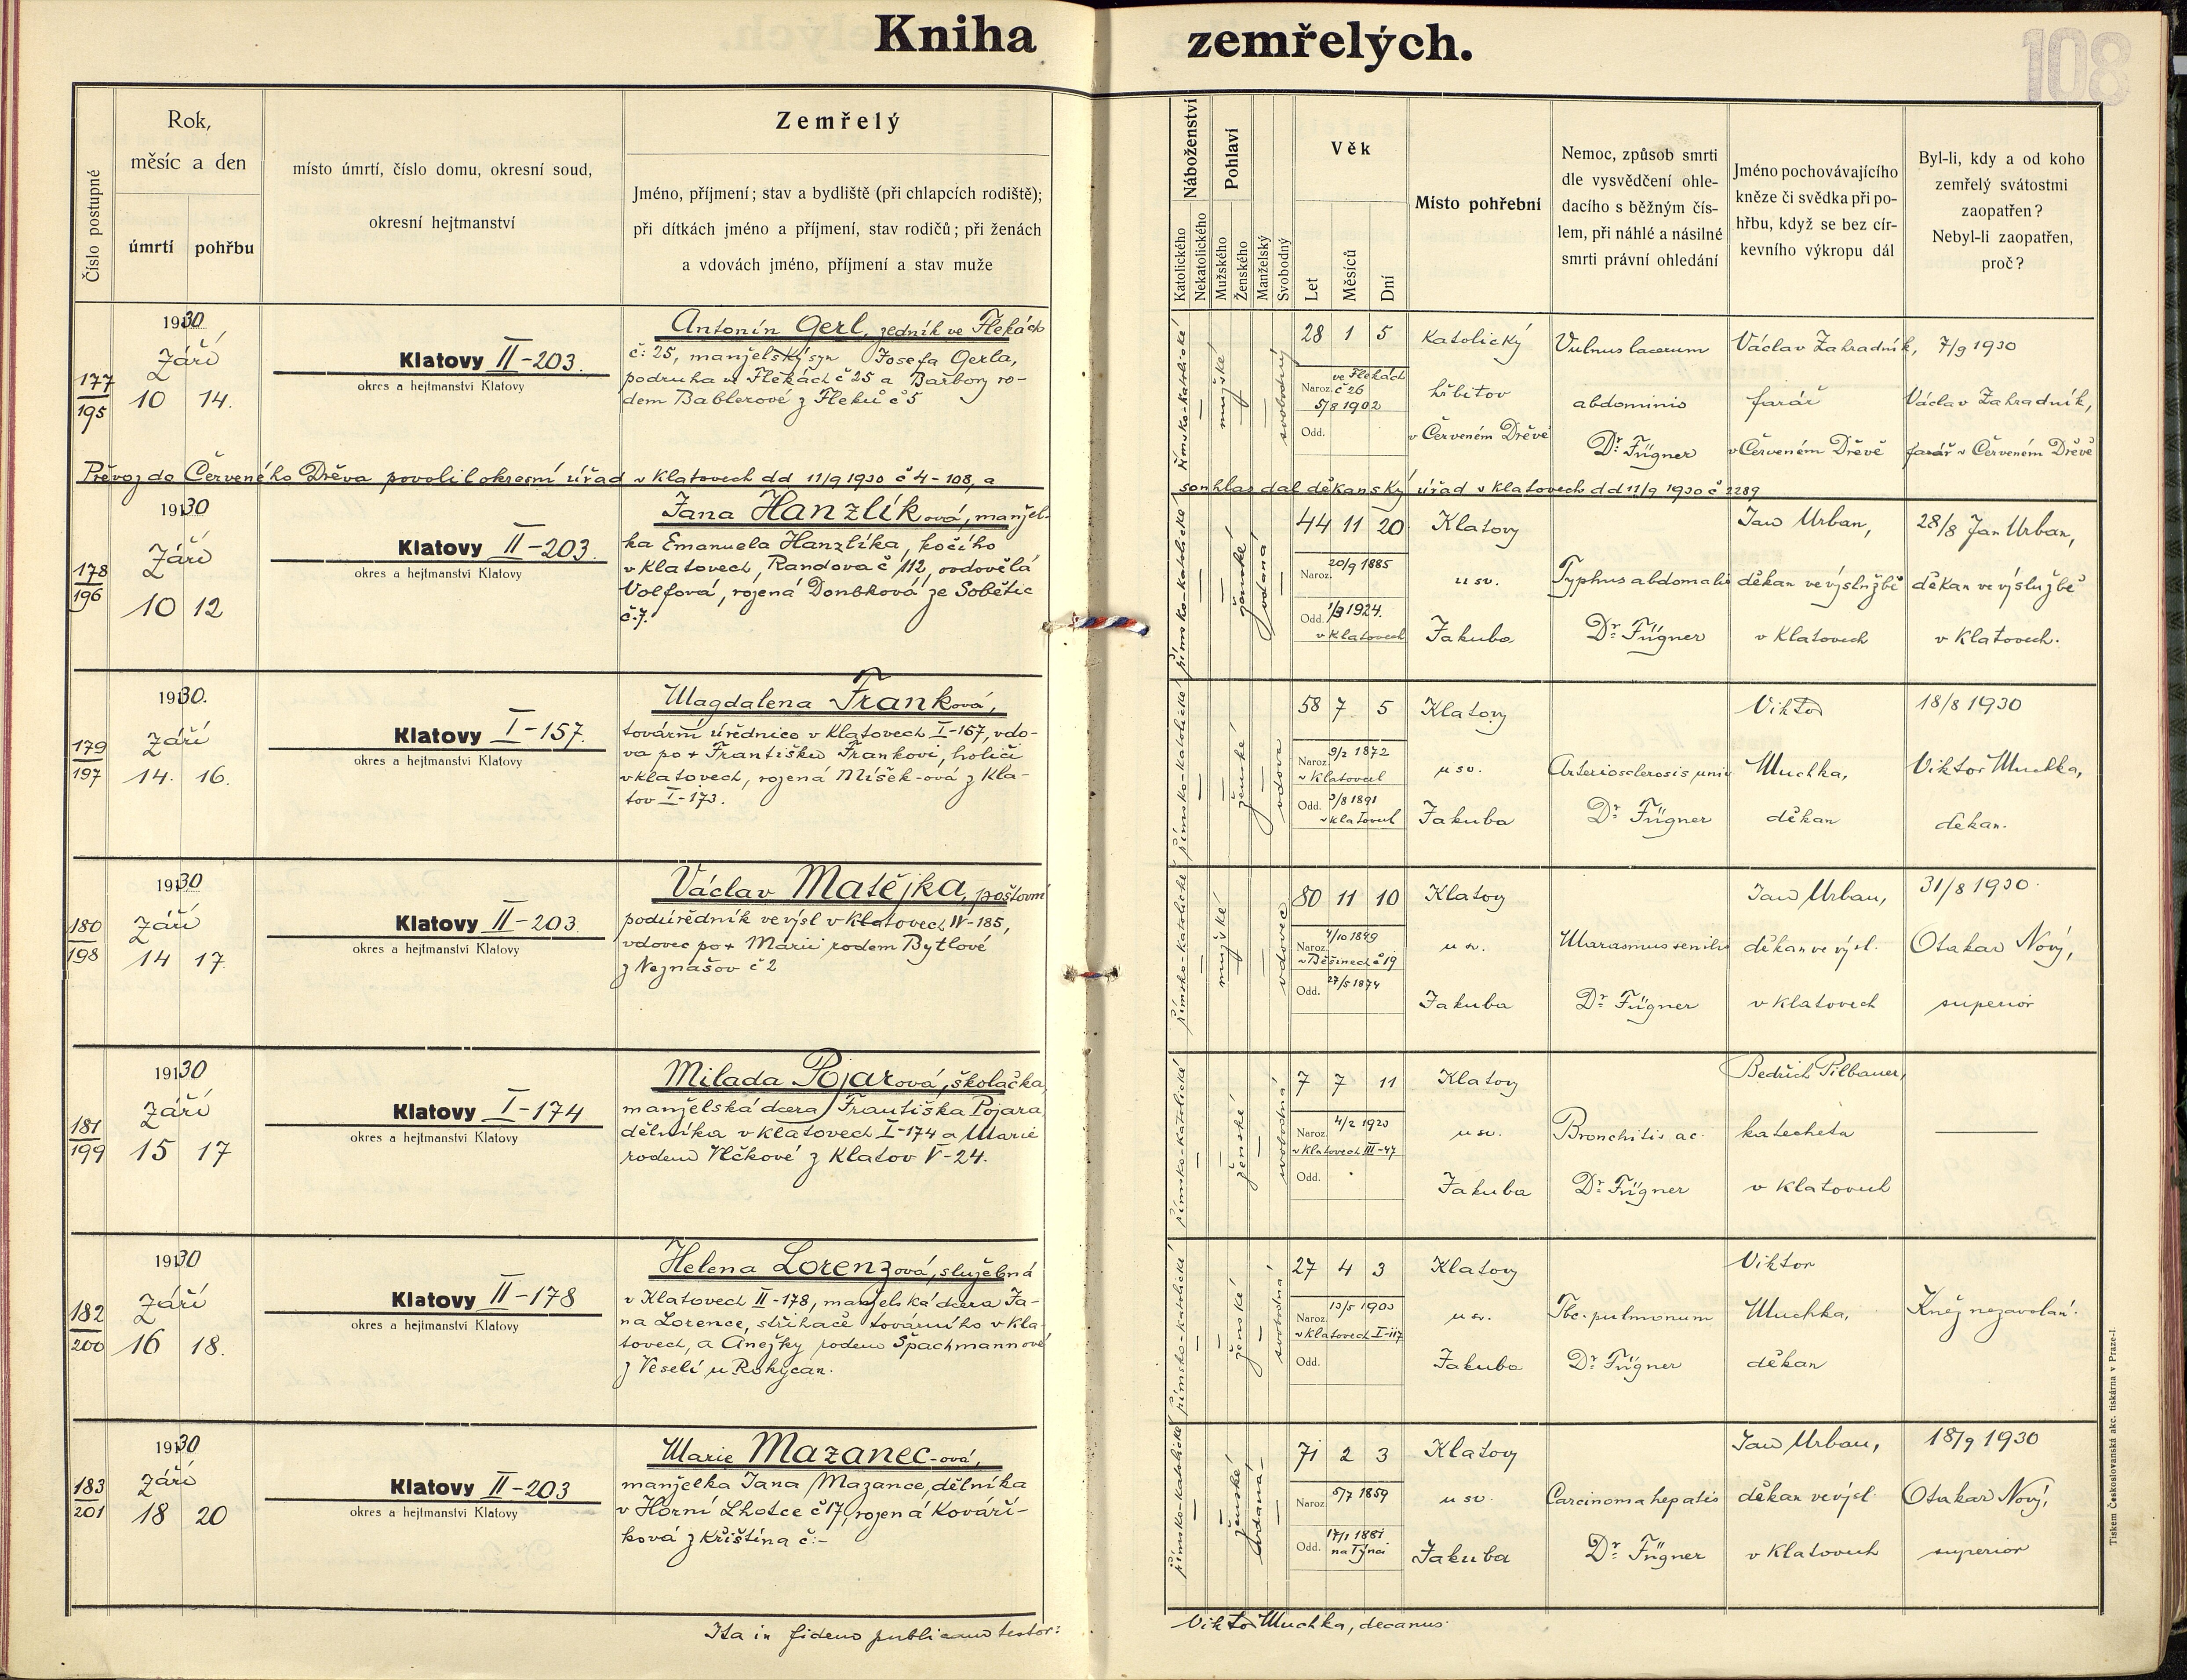 Kniha zemřelých.
108
Číslo postupné
Rok,
měsíc a den
úmrtí
pohřbu
místo úmrtí, číslo domu, okresní soud,
okresní hejtmanství
Zemřelý
Jméno, příjmení; stav a bydliště (při chlapcích rodiště);
při dítkách jméno a příjmení, stav rodičů; při ženách
a vdovách jméno, příjmení a stav muže
Náboženství
Katolického
Nekatolického
Pohlaví
Mužského
Ženského
Manželský
Svobodný
Věk
Let
Měsíců
Dní
Místo pohřební
Nemoc, způsob smrti
dle vysvědčení ohle-
dacího s běžným čís-
lem, při náhlé a násilné
smrti právní ohledání
Jméno pochovávajícího
kněze či svědka při po-
hřbu, když se bez cír-
kevního výkropu dál
Byl-li, kdy a od koho
zemřelý svátostmi
zaopatřen?
Nebyl-li zaopatřen,
proč?
177
195
1930
Září
10 14.
Klatovy II-203.
okres a hejtmanství Klatovy
Antonín Gerl, zedník ve Flekách
č: 25, manželský syn Josefa Gerla,
podruha ve Flekách č 25 a Barbory ro-
dem Bablerové z Fleků č 5
římsko-katolické
mužské
svobodný
28 1 5
Naroz. ve Flekách
č 26
5/8 1902
Odd.
Katolický
hřbitov
v Červeném Dřevě
Vulnus lacerum
abdominis
Dr. Fügner
Václav Zahradník,
farář
v Červeném Dřevě
7/9 1930
Václav Zahradník,
farář v Červeném Dřevě
Převoz do Červeného Dřeva povolil okresní úřad v Klatovech dd 11/9 1930 č 4-108, a
souhlas dal děkanský úřad v Klatovech dd 11/9 1930 č 2289
178
196
1930
Září
10 12
Klatovy II-203.
okres a hejtmanství Klatovy
Jana Hanzlíková, manžel-
ka Emanuela Hanzlíka, kočího
v Klatovech, Randova č 112, ovdovělá
Volfová, rozená Donbková ze Sobětic
č.7.
římsko-katolické
ženské
vdaná
44 11 20
Naroz. 20/9 1885
Odd. 1/3 1924.
v Klatovech
Klatovy
u sv.
Jakuba
Typhus abdomalis
Dr. Fügner
Jan Urban,
děkan ve výslužbě
v Klatovech
28/8 Jan Urban,
děkan ve výslužbě
v Klatovech.
179
197
1930.
Září
14. 16.
Klatovy I-157.
okres a hejtmanství Klatovy
Magdalena Franková,
tovární úřednice v Klatovech I-157, vdo-
va po + Františku Frankovi, holiči
v Klatovech, rozená Míšek-ová z Kla-
tov I-173.
římsko-katolické
ženské
vdova
58 7 5
Naroz. 9/2 1872
v Klatovech
Odd. 3/8 1891
v Klatovech
Klatovy
u sv.
Jakuba
Arteriosclerosis univ
Dr. Fügner
Viktor
Muchka,
děkan
18/8 1930
Viktor Muchka,
děkan.
180
198
1930
Září
14 17.
Klatovy II-203.
okres a hejtmanství Klatovy
Václav Matějka, poštovní
podúředník ve výsl v Klatovech IV-185,
vdovec po + Marii rodem Bytlové
z Neznašov č 2
římsko-katolické
mužské
vdovec
80 11 10
Naroz. 4/10 1849
v Běšinech č 19
Odd. 27/5 1874
Klatovy
u sv.
Jakuba
Marasmus senilis
Dr. Fügner
Jan Urban,
děkan ve výsl.
v Klatovech
31/8 1930.
Otakar Nový,
superior
181
199
1930
Září
15 17
Klatovy I-174
okres a hejtmanství Klatovy
Milada Pojarová, školačka,
manželská dcera Františka Pojara,
dělníka v Klatovech I-174 a Marie
rodem Vlčkové z Klatov V-24.
římsko-katolické
ženské
svobodná
7 7 11
Naroz. 4/2 1923
v Klatovech III-47
Odd.
Klatovy
u sv.
Jakuba
Bronchitis ac.
Dr. Fügner
Bedřich Pilbauer,
katecheta
v Klatovech
182
200
1930
Září
16 18.
Klatovy II-178
okres a hejtmanství Klatovy
Helena Lorenzová, služebná
v Klatovech II-178, manželská dcera Ja-
na Lorence, střihače továrního v Kla-
tovech, a Anežky rodem Špachmannové
z Veselí u Rokycan.
římsko-katolické
ženské
svobodná
27 4 3
Naroz. 13/5 1903
v Klatovech I-117
Odd.
Klatovy
u sv.
Jakuba
Tbc. pulmonum
Dr. Fügner
Viktor
Muchka,
děkan
Kněz nezavolán.
183
201
1930
Září
18 20
Klatovy II-203
okres a hejtmanství Klatovy
Marie Mazanec-ová,
manželka Jana Mazance, dělníka
v Horní Lhotce č 17, rozená Kováří-
ková z Křištína č:-
římsko-katolické
ženské
vdaná
71 2 3
Naroz. 5/7 1859
Odd. 17/1 1881
na Týnci
Klatovy
u sv.
Jakuba
Carcinoma hepatis
Dr. Fügner
Jan Urban,
děkan ve výsl.
v Klatovech
18/9 1930
Otakar Nový,
superior
Ita in fidem publicam testor:
Viktor Muchka, decanus.
Tiskem Českoslovanská akc. tiskárna v Praze-I.